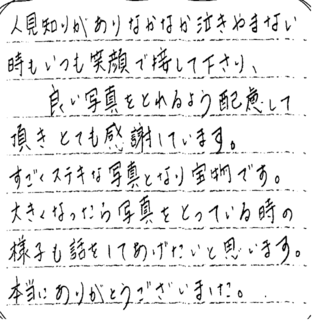 人見知りがありなかなか泣きやまない
時もいつも笑顔で接して下さり、
良い写真をとれるよう配慮して
頂きとても感謝しています。
すごくステキな写真となり宝物です。
大きくなったら写真をとっている時の
様子も話をしてあげたいと思います。
本当にありがとうございました。